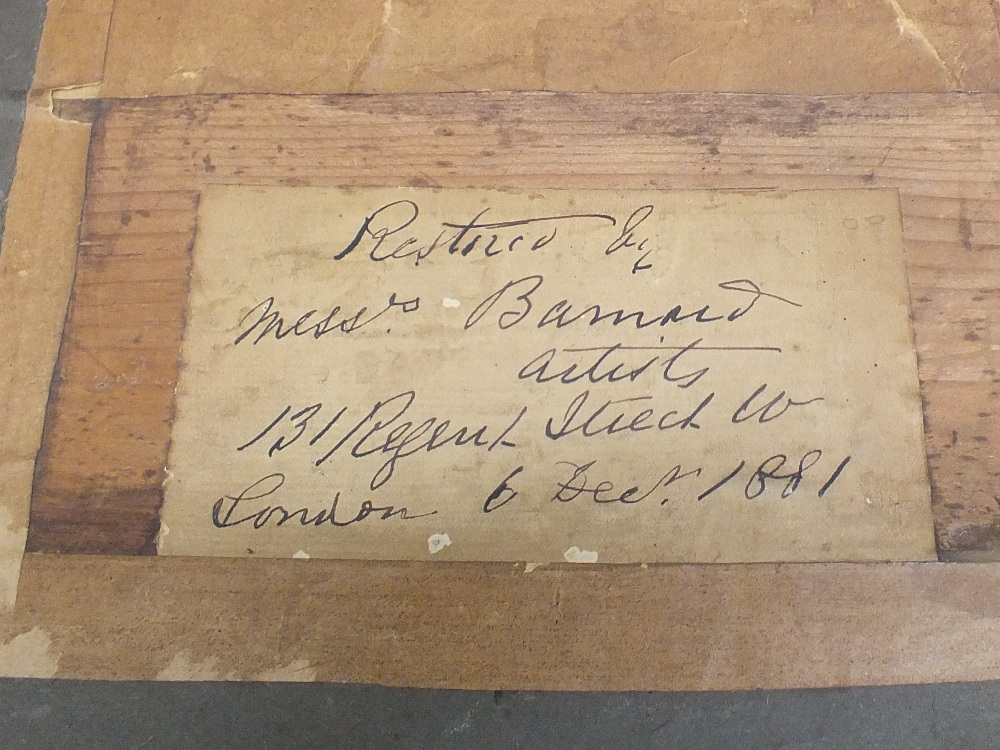 Restored by
Messrs. Barnard
artists
131 Regent Street W
London 6 Decr. 1881